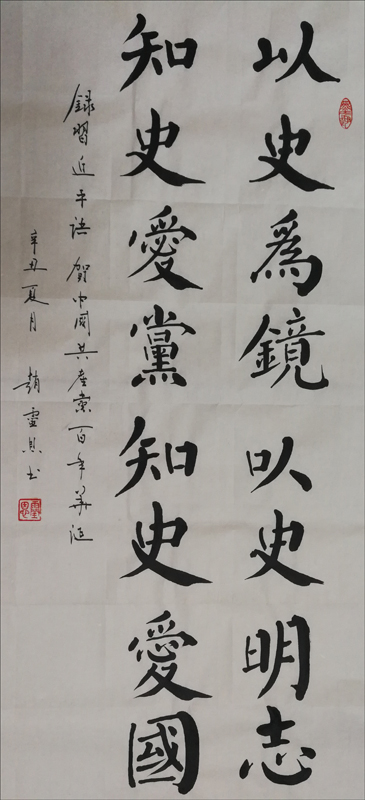 以史爲鏡以史明志
知史愛黨知史愛國
録習近平語賀中國共産黨百年華誕
辛丑夏月趙靈恩书